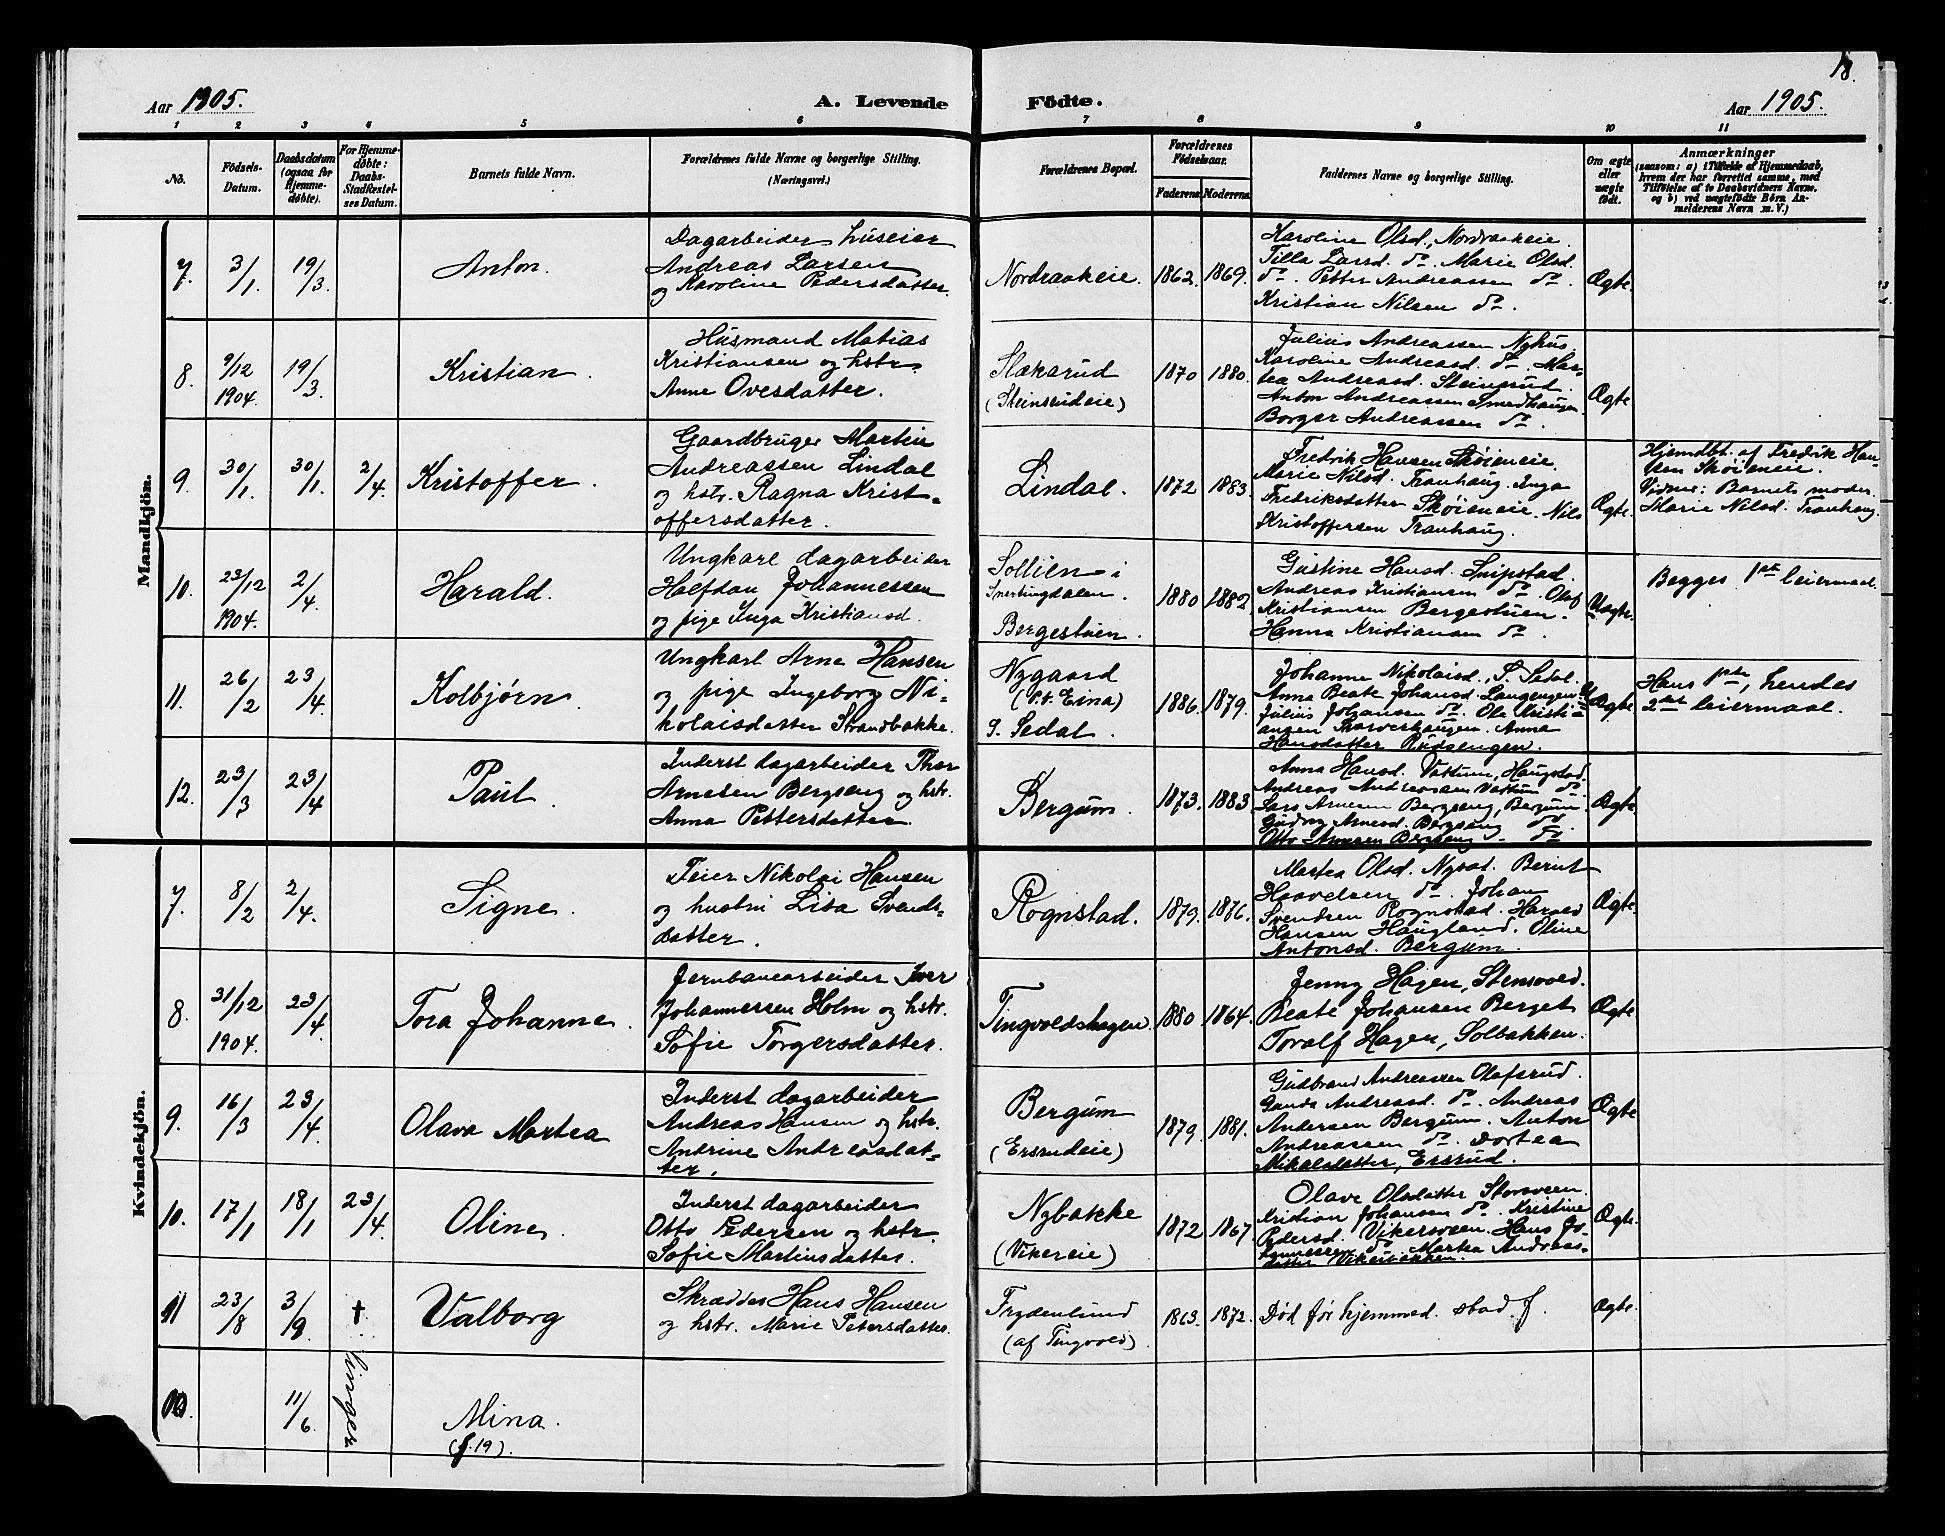 18.
Aar 1905.
A. Levende Fødte.
Aar 1905.
1 2 3 4 5 6 7 8 9 10 11
No.
Fødsels-
Datum.
Daabsdatum
(ogsaa for
Hjemme-
døbte).
For Hjemme-
døbte:
Daabs-
Stadfæstel-
ses Datum.
Barnets fulde Navn.
Forældrenes fulde Navne og borgerlige Stilling.
(Næringsvei.)
Forældrenes Bopæl.
Forældrenes
Fødselsaar.
Faderens. Moderens.
Faddernes Navne og borgerlige Stilling.
Om ægte
eller
uægte
født.
Anmærkninger
(saasom: a) i Tilfælde af Hjemmedaab,
hvem der har forrettet samme, med
Tilføielse af to Daabsvidners Navne,
og b) ved uægtefødte Børn An-
melderens Navn m. V.)
Mandkjøn.
7. 3/1. 19/3. Anton.
Dagarbeider huseier
Andreas Larsen
og Karoline Pedersdatter.
Nordraakeie. 1862. 1869.
Karoline Olsd., Nordraakeie.
Tilla Larsd. do. Marie Olsd.
do. Petter Andreassen do.
Kristian Nilsen do.
Ægte.
8. 9/12 1904. 19/3. Kristian.
Husmand Matias
Kristiansen og hstr.
Anne Ovesdatter.
Slækarud
(Steinsrudeie)
1870 1880.
Julius Andreassen Nyhus.
Karoline Andreasd. do. Mar-
tea Andreasd. Steinsrud.
Anton Andreassen Smedhaugen.
Borger Andreassen do.
Ægte
9. 30/1. 30/1. 2/4. Kristoffer.
Gaardbruger Martin
Andreassen Lindal
og hstr. Ragna Krist-
offersdatter.
Lindal. 1872 1883.
Fredrik Hansen Skøieneie.
Marie Nilsd. Tranhaug. Inga
Fredriksdatter Skøieneie. Nils
Kristoffersen Tranhaug.
Ægte.
Hjemdbt. af Fredrik Han-
sen Skøieneie.
Vidner: Barnets moder.
Marie Nilsd. Tranhaug.
10. 23/12 1904. 2/4. Harald.
Ungkarl dagarbeider
Halfdan Johannessen
og pige Inga Kristiansd.
Sollien i
Snertingdalen.
Bergestuen.
1880 1882
Gustine Hansd. Snipstad.
Andreas Kristiansen do. Olaf
Kristiansen Bergestuen.
Hanna Kristiansen do.
Uægte.
Begges 1ste leiermaal.
11. 26/2 23/4. Kolbjørn.
Ungkarl Arne Hansen
og pige Ingeborg Ni-
kolaisdatter Strandbakke.
Nygaard
(p.t. Eina)
S. Sedal.
1886. 1879.
Johanne Nikolaisd., S. Sedal.
Anna Beate Johansd. Langengen
Julius Johansen do. Ole Kristi-
ansen
Anna
Hansdatter Rudsengen.
Uægte.
Hans 1ste, hendes
2det leiermaal.
12. 23/3 23/4 Paul.
Inderst dagarbeider Thor
Arnesen Bergseng og hstr.
Anna Pettersdatter.
Bergum. 1873. 1883
Anna Hansd. Vattum, Haugstad.
Andreas Andreassen Vattum do.
Lars Arnesen Bergseng, Bergum.
Gudny Arnesd. Bergseng do.
Otto Arnesen Bergseng do.
Ægte.
Kvindekjøn.
7. 8/2 2/4. Signe.
Feier Nikolai Hansen
og hustru Lisa Svends-
datter.
Rognstad. 1879. 1876.
Martea Olsd. Nysat. Bernt
Haavelsen do. Johan
Svendsen Rognstad. Harald
Hansen Haugland. Oline
Antonsd. Bergum.
Ægte.
8. 31/12 1904. 23/4. Tora Johanne.
Jernbanearbeider Iver
Johannessen Holm og hstr.
Sofie Torgersdatter.
Tingvoldshagen. 1880. 1864.
Jenny Hagen, Stensvold.
Beate Johansen Berget
Toralf Hagen, Solbakken.
Ægte
9. 16/3 23/4. Olava Martea
Inderst dagarbeider
Andreas Hansen og hstr.
Andrine Andreasdat-
ter.
Bergum
(Ersrudeie)
1879. 1881.
Gudbrand Andreassen Olafsrud.
Gunda Andreasd. do. Andreas
Andersen Bergum. Anton
Andreassen do. Dortea
Mikalsdatter, Ersrud.
Ægte
10. 17/1 18/1 23/4. Oline.
Inderst dagarbeider
Otto Pedersen og hstr.
Sofie Martinsdatter.
Nybakke
(Vikereie)
1872 1867
Olave Olsdatter Storsveen.
Kristian Johansen do. Kristine
Pedersd. Vikersveen. Hans Jo-
hannessen do. Martea Andreas-
datter Vikerbakken.
Ægte.
11 23/8 3/9. + Valborg
Skrædder Hans Hansen
og hstr. Marie Petersdatter.
Frydenlund
(af Tingvold)
1863. 1872.
Død før hjemmed. stad f.
Ægte.
11/6 Mina.
(f. 19).